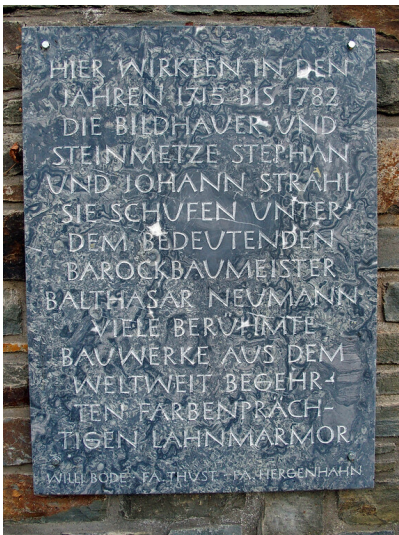 HIER WIRKTEN IN DEN
JAHREN 1715 BIS 1782
DIE BILDHAUER UND
STEINMETZE STEPHAN
UND JOHANN STRAHL
SIE SCHUFEN UNTER
DEM BEDEUTENDEN
BAROCKBAUMEISTER
BALTHASAR NEUMANN
VIELE BERÜHMTE
BAUWERKE AUS DEM
WELTWEIT BEGEHR-
TEN FARBENPRÄCH-
TIGEN LAHNMARMOR
WILLI BODE · FA. THUST · FA. HERGENHAHN